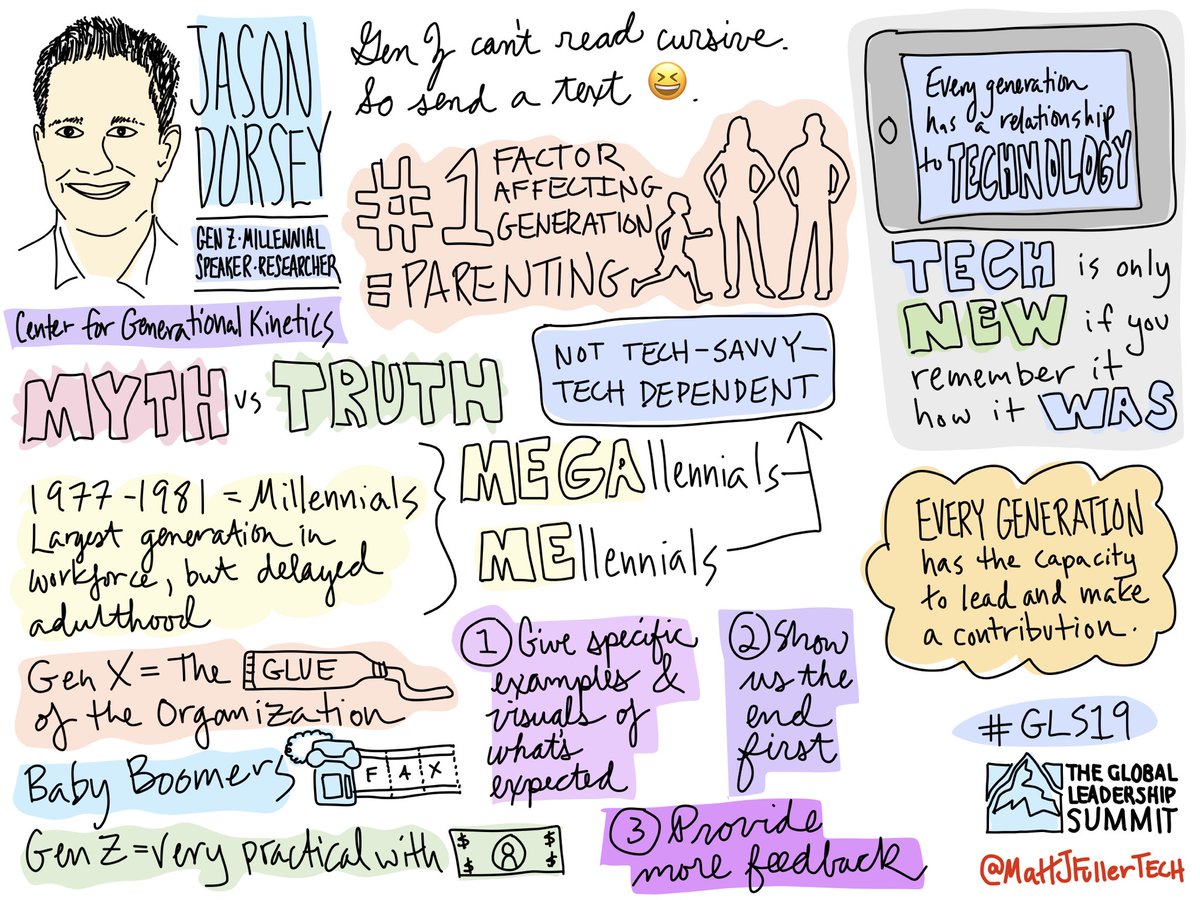 JASON
DORSEY
GEN Z • MILLENNIAL
SPEAKER • RESEARCHER
Center for Generational Kinetics
Gen Z can't read cursive.
So send a text 😆.
#1 FACTOR
AFFECTING
GENERATION
= PARENTING
Every generation
has a relationship
to TECHNOLOGY
TECH is only
NEW if you
remember it
how it WAS
MYTH vs TRUTH
NOT TECH-SAVVY—
TECH DEPENDENT
1977-1981 = Millennials
Largest generation in
workforce, but delayed
adulthood
MEGAllennials
MEllennials
EVERY GENERATION
has the capacity
to lead and make
a contribution.
Gen X = The GLUE
of the Organization
Baby Boomers FAX
Gen Z = Very practical with $ $ 8 $ $
1 Give specific
examples &
visuals of
what's
expected
2 Show
us the
end
first
3 Provide
more feedback
#GLS19
THE GLOBAL
LEADERSHIP
SUMMIT
@MATTJFULLERTECH